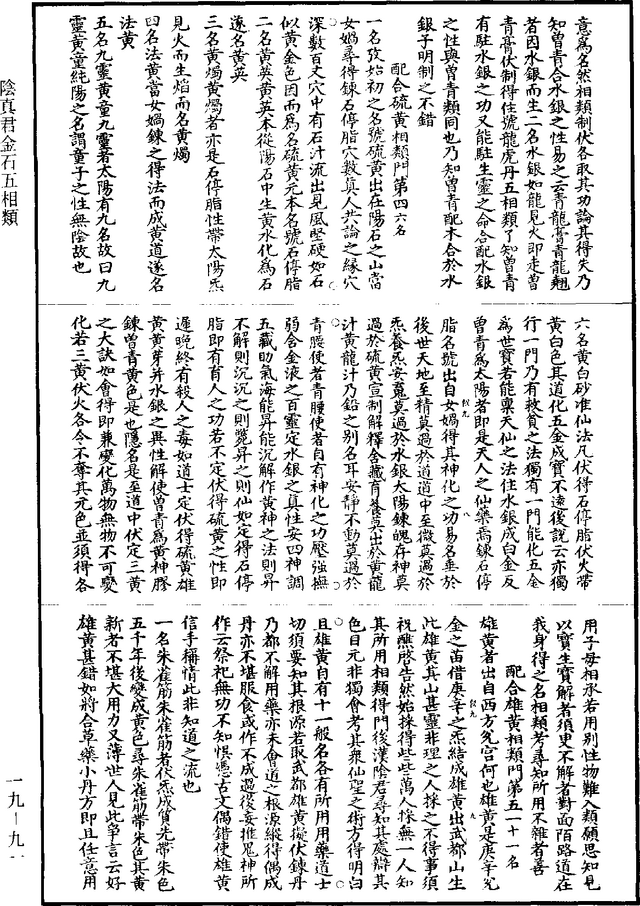 意爲名然相類制伏各取其功論其得失乃
知曾青合水銀之性易之云青龍膏青龍翹
者因水銀而生二名水銀如龍見火即走曾
青膏伏制得住號龍虎丹五相類了知曾青
有駐水銀之功又能駐生靈之命合配水銀
之性與曾青類同也乃知曾青配木合於水
銀子明制之不錯
配合硫黄相類門第四六名
一名孜始初之名號硫黄出在陽石之山當
女媧尋得鍊石停脂穴數真人共論之緣穴
深數百丈穴中有石汁流出見風堅硬如石
似黄金色因而爲名硫黄元本名號石停脂
二名黄英黄英本從陽石中生黄水化爲石
遂名黄英
三名黄燭黄燭者亦是石停脂性帶太陽炁
見火而生焰而名黄燭
四名法黄當女媧鍊之得法而成黄道遂名
法黄
五名九靈黄童九靈者太陽有九名故曰九
靈黄童純陽之名謂童子之性無陰故也
六名黄白砂准仙法凡伏得石停脂伏火帶
黄白色其道化五金成寶不遠後說云亦獨
行一門乃有救貧之法獨有一門能化五金
爲世寶者能稟天仙之法住水銀成白金反
曾青爲太陽者即是天人之仙藥焉鍊石停
脂名號出自女媧得其神化之功易名垂於
後世天地至精莫過於道道中至微莫過於
炁養炁安䰟莫過於水銀太陽鍊魄存神莫
過於硫黄宣制解釋含藏育養莫出於黄龍
汁黄龍汁乃鉛之别名耳安静不動莫過於
青腰使者青腰使者自有神化之功壓強撫
弱含金液之百靈定水銀之真性安四神調
五藏助氣海能昇能沉解作黄神之法則昇
不解則沉沉之則斃昇之則仙如定得石停
脂即有育人之功若不定伏得硫黄之性即
遲晚終有殺人之毒如道士定伏得硫黄雄
黄黄芽并水銀之異性解使曾青爲黄神膠
鍊曾青黄色是也隱名是至道中伏定三黄
之大訣如會得即兼變化萬物無物不可變
化若三黄伏火各令不奪其元色並須得各
用子母相承若用别性物難入類願思知見
以實生寶解者須更不解者對面陌路道在
我身得之名相類考尋知所用不雜者善
配合雄黄相類門第五十一名
雄黄者出自西方兊宫何也雄黄是庚辛兊
金之苗借庚辛之炁結成雄黄出武都山生
此雄黄其山甚靈非理之人採之不得事須
祝醮啓告然始採得些些萬人採無一人知
其所用相類得門後漢陰君尋知其處辯其
色目元非獨會考其衆仙聖之術方得明白
且雄黄自有十一般名各有所用用藥道士
切須要知其根源若取武都雄黄擬伏鍊丹
乃都不解用藥亦未會道之根源縱得偶成
丹亦不堪服食或作不成過後妄推鬼神所
作云祭祀無功不知惧慿古文偶錯使雄黄
信手稱情此非知道之流也
一名朱雀筋朱雀筋者伏炁成質先帶朱色
五千年後變成黄色尋朱雀筋帶朱色其黄
新者不堪大用力又薄世人見此爭言云好
雄黄甚錯如將合草藥小丹方即且任意用
陰真君金石五相類
一九—九一